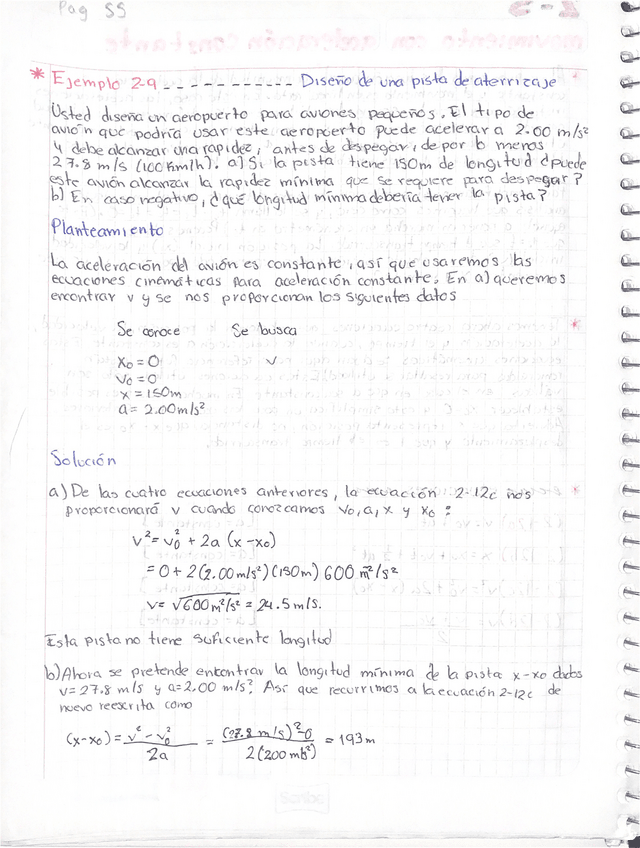 Pag 55
* Ejemplo 2-9 ----------- Diseño de una pista de aterrizaje
Usted diseña un aeropuerto para aviones pequeños. El tipo de
avión que podría usar este aeropuerto puede acelerar a 2.00 m/s²
y debe alcanzar una rapidez, antes de despegar, de por lo menos
27.8 m/s (100 km/h). a) Si la pista tiene 150m de longitud ¿puede
este avión alcanzar la rapidez mínima que se requiere para despegar?
b) En caso negativo, ¿qué longitud mínima debería tener la pista?
Planteamiento
La aceleración del avión es constante, así que usaremos las
ecuaciones cinemáticas para aceleración constante. En a) queremos
encontrar v y se nos proporcionan los siguientes datos
Se conoce Se busca
x₀ = 0 v
v₀ = 0
x = 150m
a = 2.00m/s²
Solución
a) De las cuatro ecuaciones anteriores, la ecuación 2-12c nos
proporcionará v cuando conozcamos v₀, a, x y x₀:
v² = v₀² + 2a (x-x₀)
= 0 + 2(2.00m/s²)(150m) 600 m²/s²
v = √600 m²/s² = 24.5 m/s.
Esta pista no tiene suficiente longitud
b) Ahora se pretende encontrar la longitud mínima de la pista x-x₀ dados
v = 27.8 m/s y a = 2.00 m/s². Así que recurrimos a la ecuación 2-12c de
nuevo reescrita como
(x-x₀) = v² - v₀² / 2a = (27.8 m/s)² - 0 / 2(200 m/s²) = 193 m
Scribe